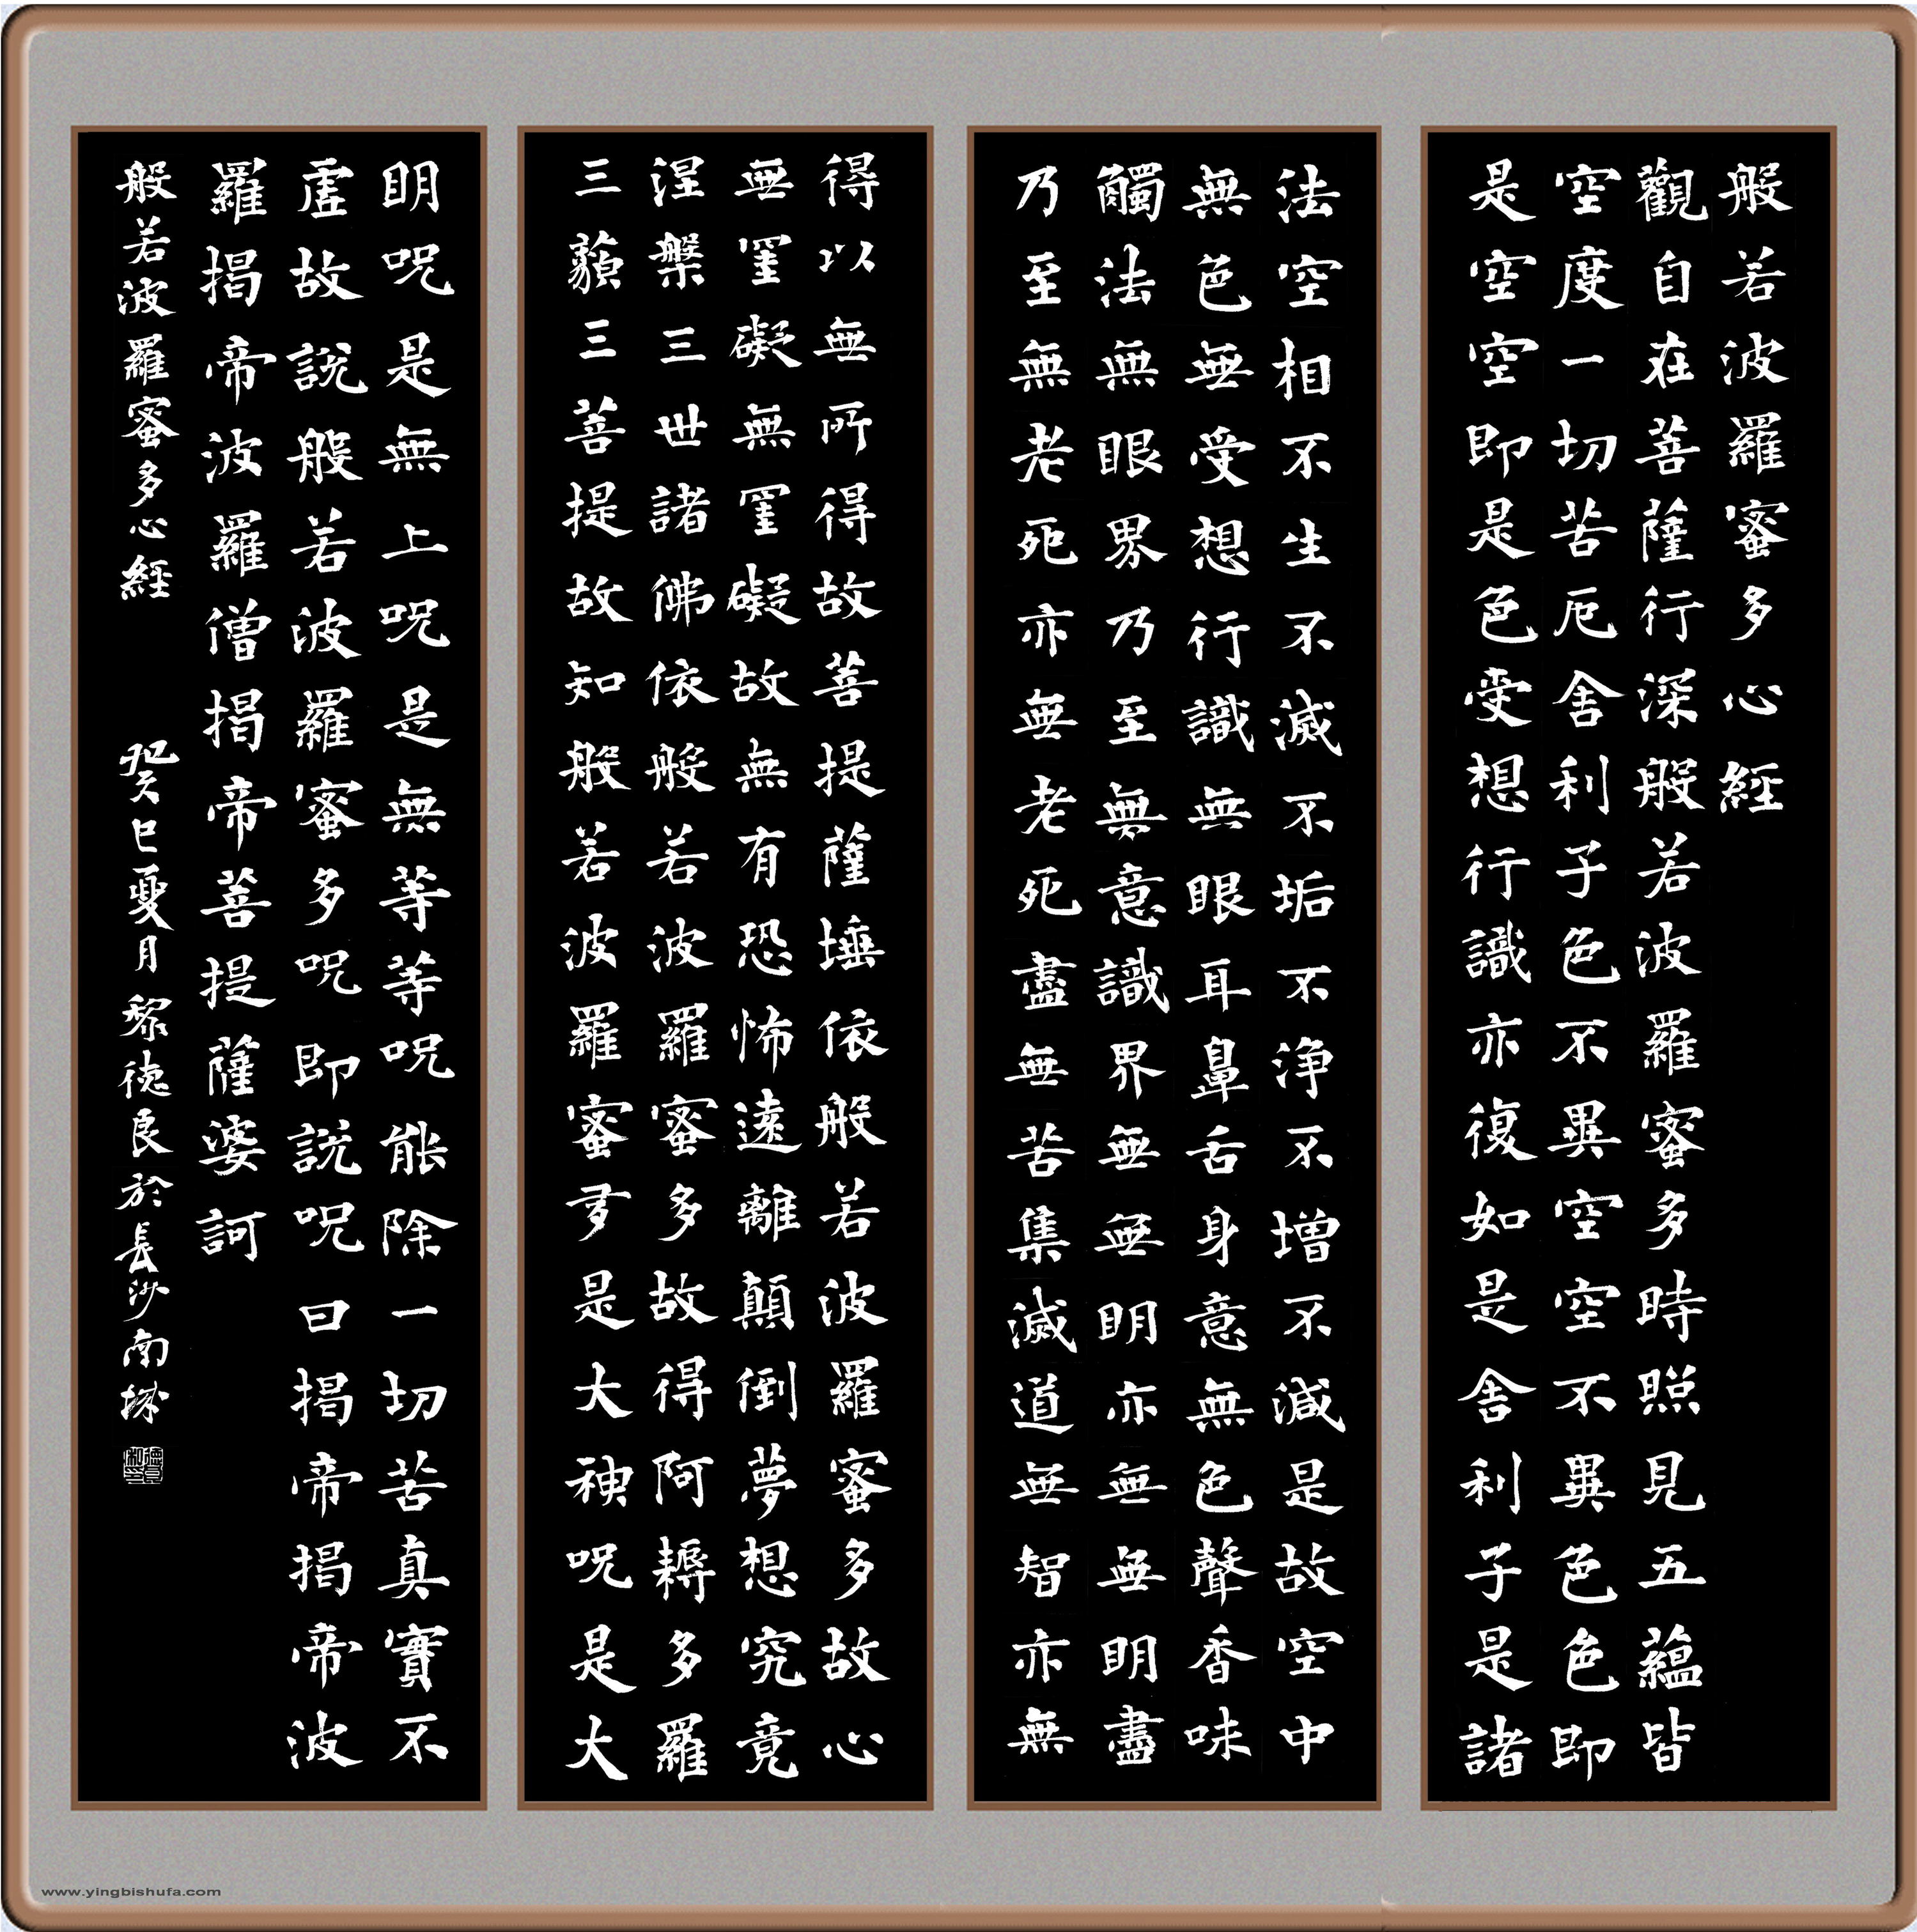 般若波羅蜜多心經
觀自在菩薩行深般若波羅蜜多時照見五蘊皆
空度一切苦厄舍利子色不異空空不異色色即
是空空即是色受想行識亦復如是舍利子是諸
法空相不生不滅不垢不淨不增不減是故空中
無色無受想行識無眼耳鼻舌身意無色聲香味
觸法無眼界乃至無意識界無無明亦無無明盡
乃至無老死亦無老死盡無苦集滅道無智亦無
得以無所得故菩提薩埵依般若波羅蜜多故心
無罣礙無罣礙故無有恐怖遠離顛倒夢想究竟
涅槃三世諸佛依般若波羅蜜多故得阿耨多羅
三藐三菩提故知般若波羅蜜多是大神呪是大
明呪是無上呪是無等等呪能除一切苦真實不
虛故說般若波羅蜜多呪即説呪曰揭帝揭帝波
羅揭帝波羅僧揭帝菩提薩婆訶
般若波羅蜜多心經 癸巳夏月 黎德良於長沙南城
www.yingbishufa.com